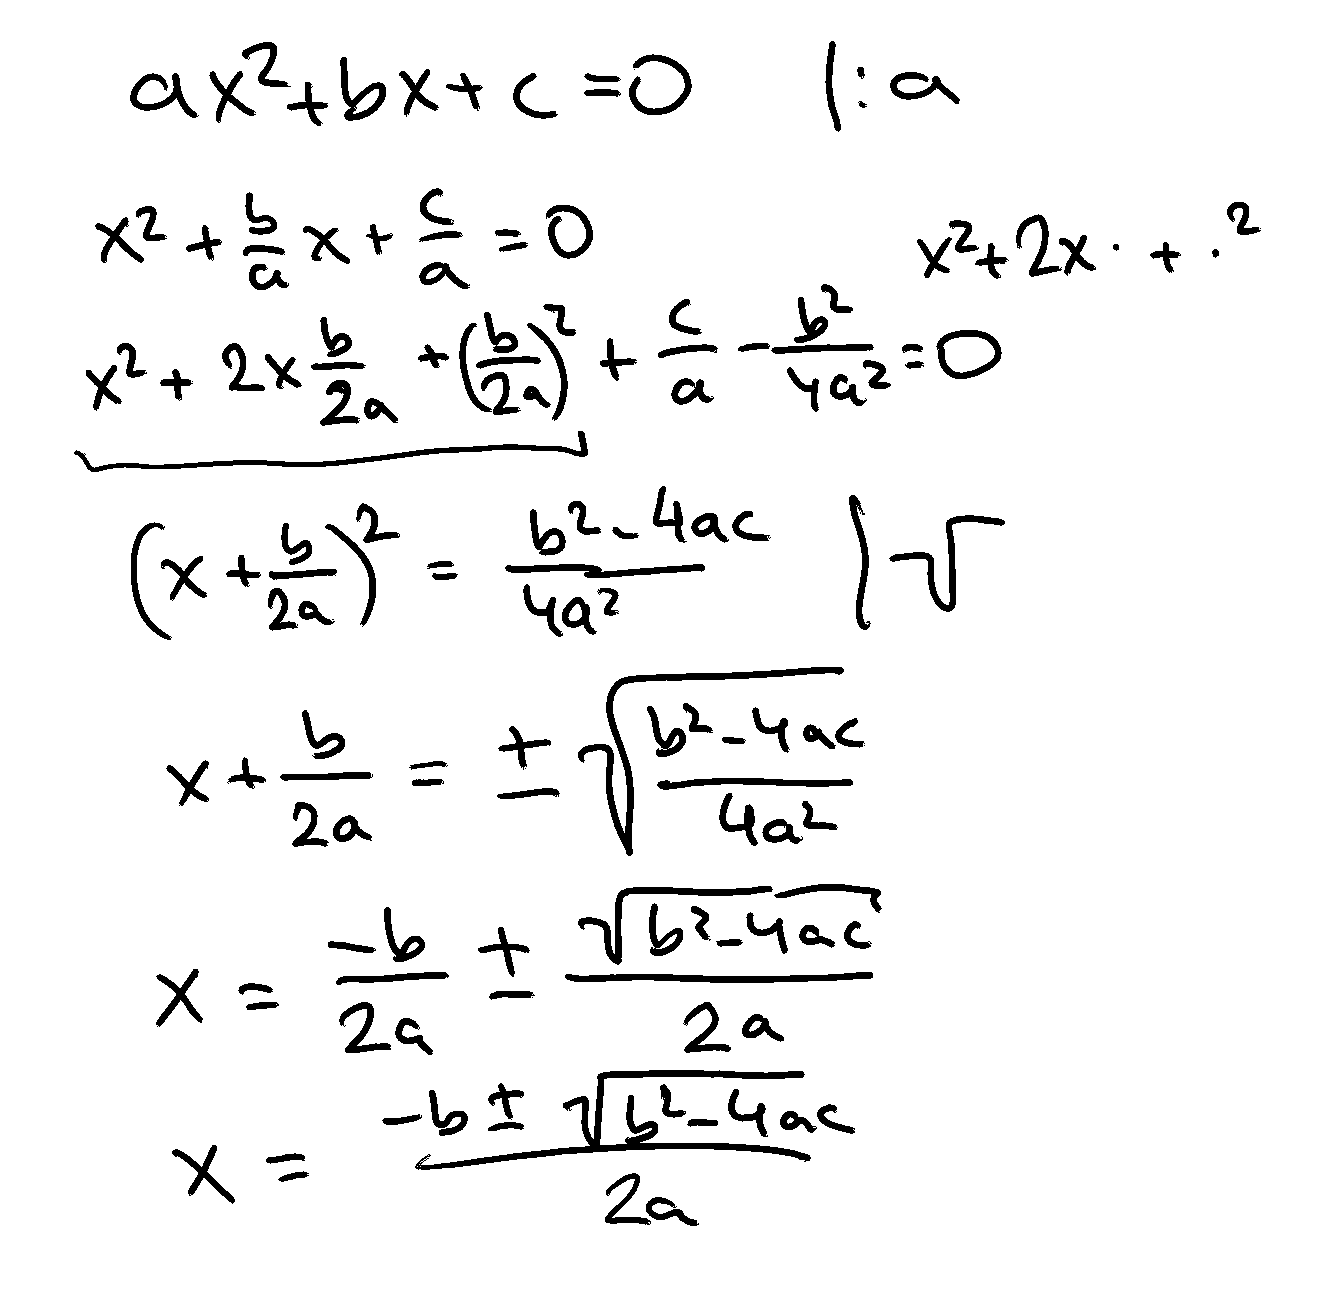 ax²+bx+c=0 |:a
x² + b/a x + c/a = 0 x²+2x· + ·²
x² + 2x b/2a + (b/2a)² + c/a - b²/4a² = 0
(x + b/2a)² = (b²-4ac)/4a² |√
x + b/2a = ± √((b²-4ac)/4a²)
x = -b/2a ± √(b²-4ac)/2a
x = (-b ± √(b²-4ac))/2a